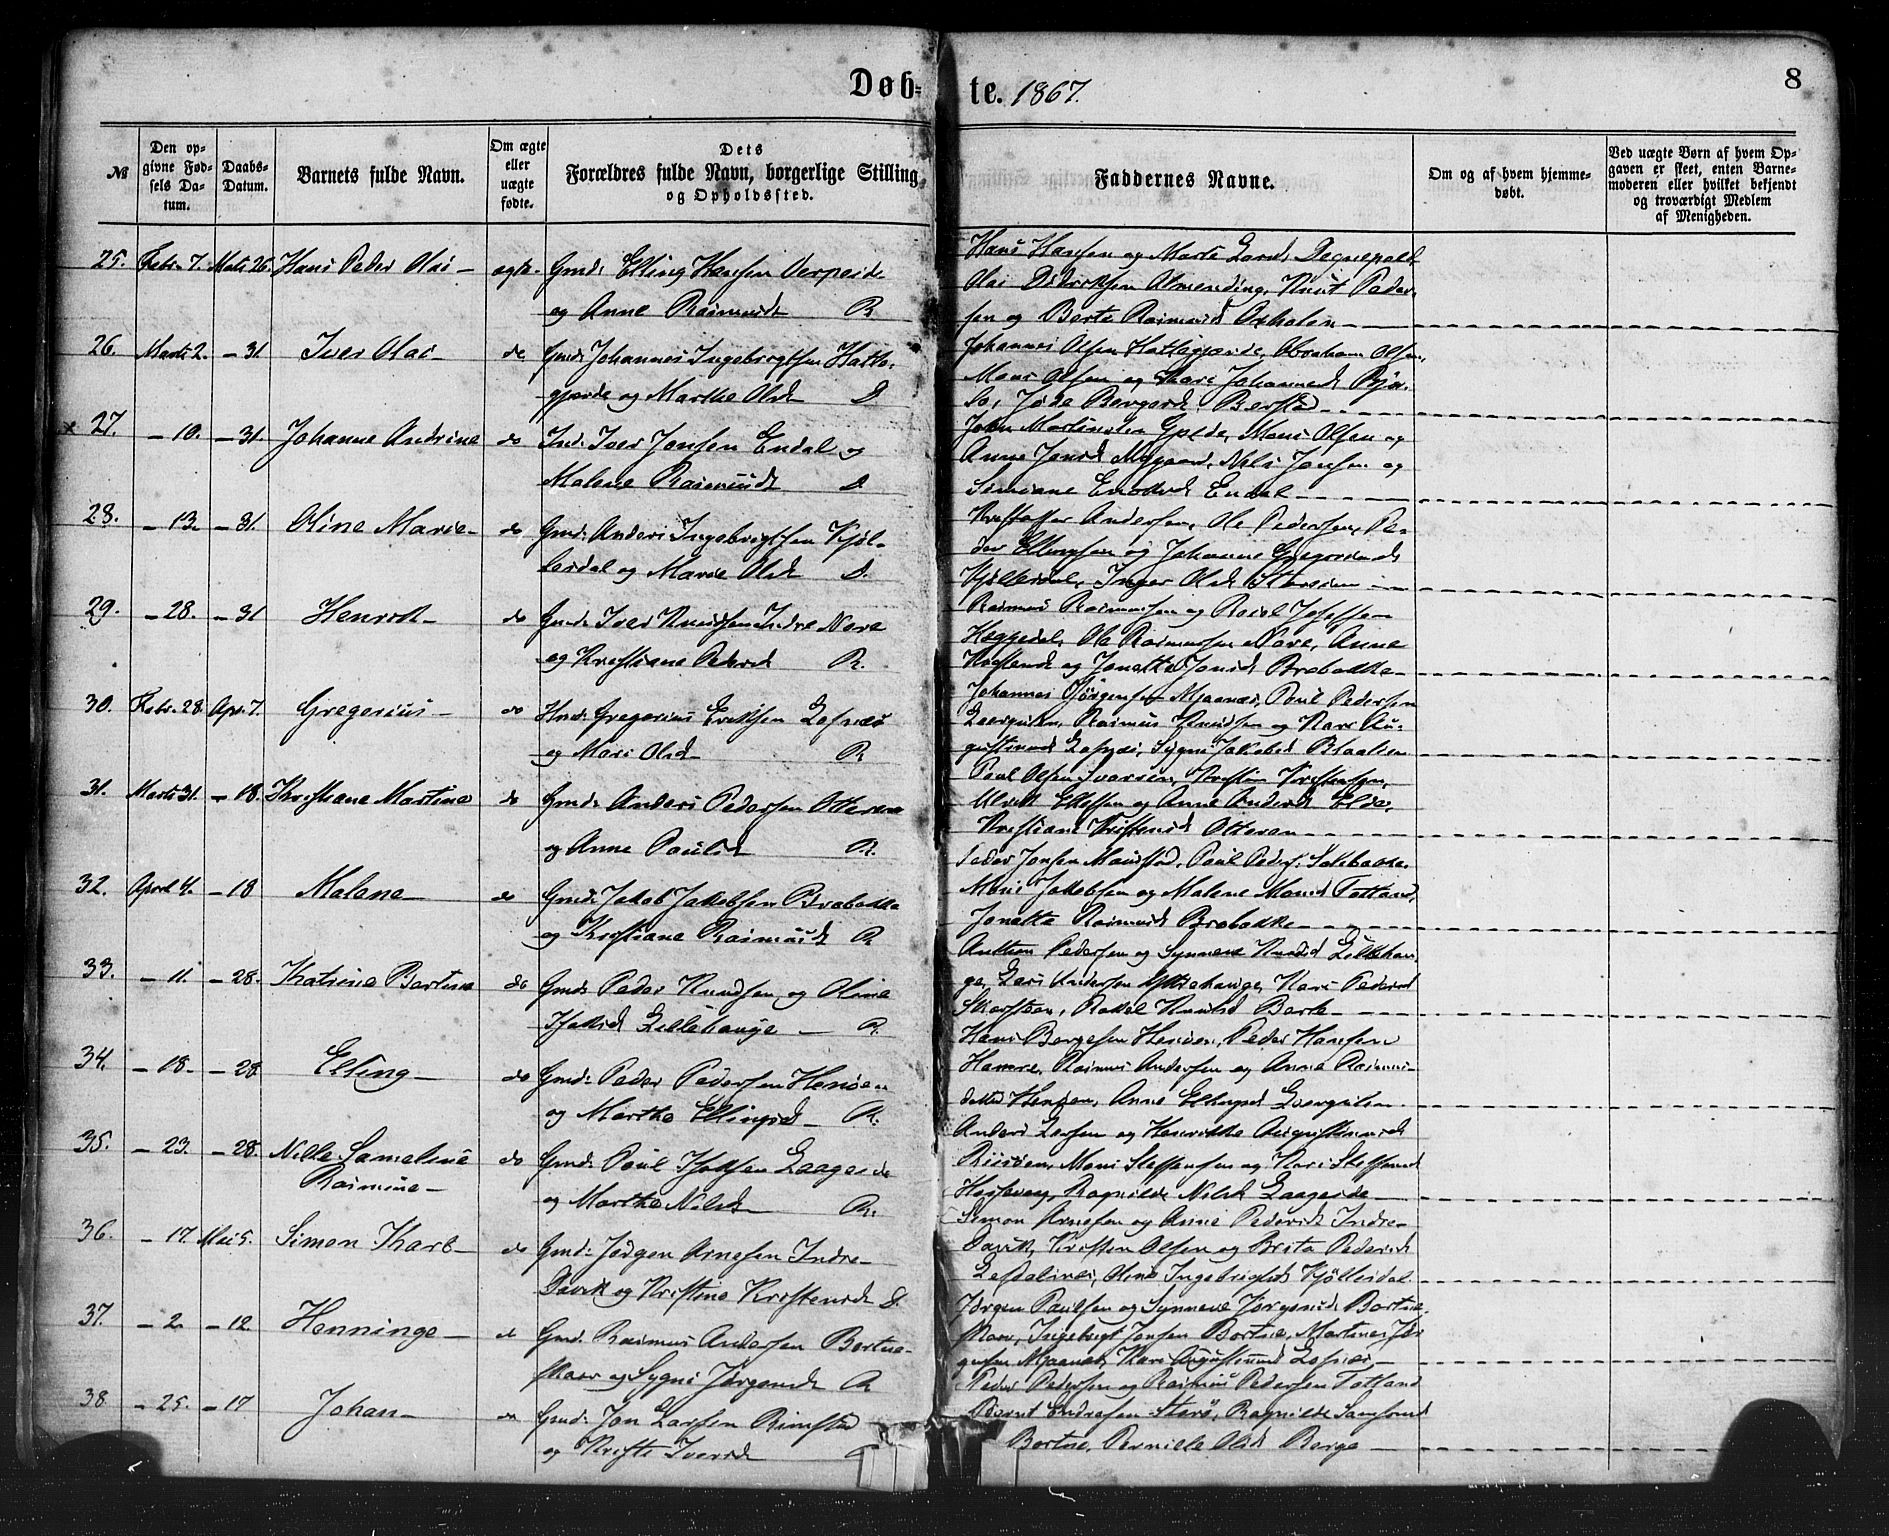 Døb=te. 1867.
8
№
Den op-
givne Fød-
sels Da-
tum.
Daabs-
Datum.
Barnets fulde Navn.
Om ægte
eller
uægte
fødte.
Dets
Forældres fulde Navn, borgerlige Stilling
og Opholdssted.
Faddernes Navne.
Om og af hvem hjemme-
døbt.
Ved uægte Børn af hvem Op-
gaven er skeet, enten Barne-
moderen eller hvilket bekjendt
og troværdigt Medlem
af Menigheden.
25. Febr. 7. Marts 26. Hans Peder Olai - ægte. Gmd: Elling Hansen Verpeide
og Anne Rasmusd R
Hans Hansen og Marte Larsd Degnepold
Olai Didriksen Almending, Knut Peder-
sen og Berte Rasmusd Oxholm
26. Marts 2. - 31 Iver Olai - do Gmd: Johannes Ingebrigtsen Hatle-
gjerde og Marthe Olsd D
Johannes Olsen Hatlegjerde, Abraham Olsen,
Mons Olsen og Kari Johannesd
27. - 10. - 31. Johanne Andrine do Ind: Iver Jonsen Endal og
Malene Rasmusd D
John Martinsen Gjelde, Mons Olsen og
Anne Jonsd MyGaard, Nils Jonsen og
Simiane Enoksd Endal
28. - 13. - 31. Oline Marie - do Gmd: Anders Ingebrigtsen Kjøl-
lesdal og Marie Olsd D.
Kristoffer Andersen, Ole Pedersen, Pe-
der Ellingsen og Johanne Gregoriusd
Kjøllesdal, Inger Olsd
29. - 28. - 31 Henrik - do Gmd: Iver Knudsen Indre Nore
og Kristiane Pedersd R.
Rasmus Rasmussen og Rasmus Josefsen
Heggedal, Ole Rasmussen Nore, Anne
Kristensd og Jonette Jonsd Brobakke
30. Febr. 28. Apr. 7. Gregorius - do Gmd: Gregorius Eriksen Lofnæs
og Mari Olsd R
Johannes Jørgensen Myanæs, Poul Pedersen
Levgulen, Rasmus Knudsen og Kari Au-
gustinusd Lefnæs, Sygni Jakobsd Blaalien
31. Marts 31. - 18. Kristiane Martine do Gmd: Anders Pedersen Otteren
og Anne Poulsd R.
Poul Olsen, Kristen Kristensen,
og Anne Andersd Elde,
Kristiane Kristensd Otteren
32. April 4. - 18 Malene - do Gmd: Jakob Jakobsen Brobakke
og Kristiane Rasmusd R
Peder Jonsen Maurstad, Poul Peders.
Mons Jakobsen og Malene Monsd Totland,
Jonette Rasmusd Brobakke
33. - 11. - 28. Katrine Bertine do Gmd: Peder Knudsen og Oline
Isaksd Lillehauge - R.
Anthon Pedersen og Synneve Knudsd Lillehau-
ge, Lars Andersen Yttrehauge, Kari Pedersd
Skarstein, Rakel Knudsd Berle
34. - 18. - 28 Elling - do Gmd: Peder Pedersen Henøen
og Marthe Ellingsd - R.
Hans Børgesen Henøen, Peder Hansen
Hamre, Rasmus Andersen og Anne Rasmus-
datter Henøen, Anne Ellingsd Levgulen
35. - 23. - 28. Nille Sameline
Rasmine - do Gmd: Poul Isaksen Laageide
og Marthe Nilsd R.
Anders Larsen og Henrikke Augustinusd
Risøen, Mons Steffensen og Kari Steffensd
Hessevaag, Ragnilde Nilsd Laageide
36. - 17. Mai 5. Simon Karl - do Gmd: Jørgen Arnesen Indre-
Davik og Kristine Kristensd D.
Simon Arnesen og Anne Pedersd Indre-
Davik, Kristen Olsen og Brita Pedersd
Lefdalsnes, Oline Ingebrigtsd Kjøllesdal
37. - 2. - 12. Henninge - do Gmd. Rasmus Andersen Bortne-
skaar og Sygni Jørgensd R
Jørgen Poulsen og Synneve Jørgensd Bortne-
skaar, Ingebrigt Jonsen Bortne, Martines Jør-
gensen Myanæs, Kari Augustinusd Lofnæs
38 - 25. - 17 Johan - do Gmd: Jon Larsen Rimstad
og Kristi Iversd
Peder Pedersen og Rasmus Pedersen Totland
Bernt Endresen, Ragnilde Samsonsd
Bortne, Pernille Olsd Berge